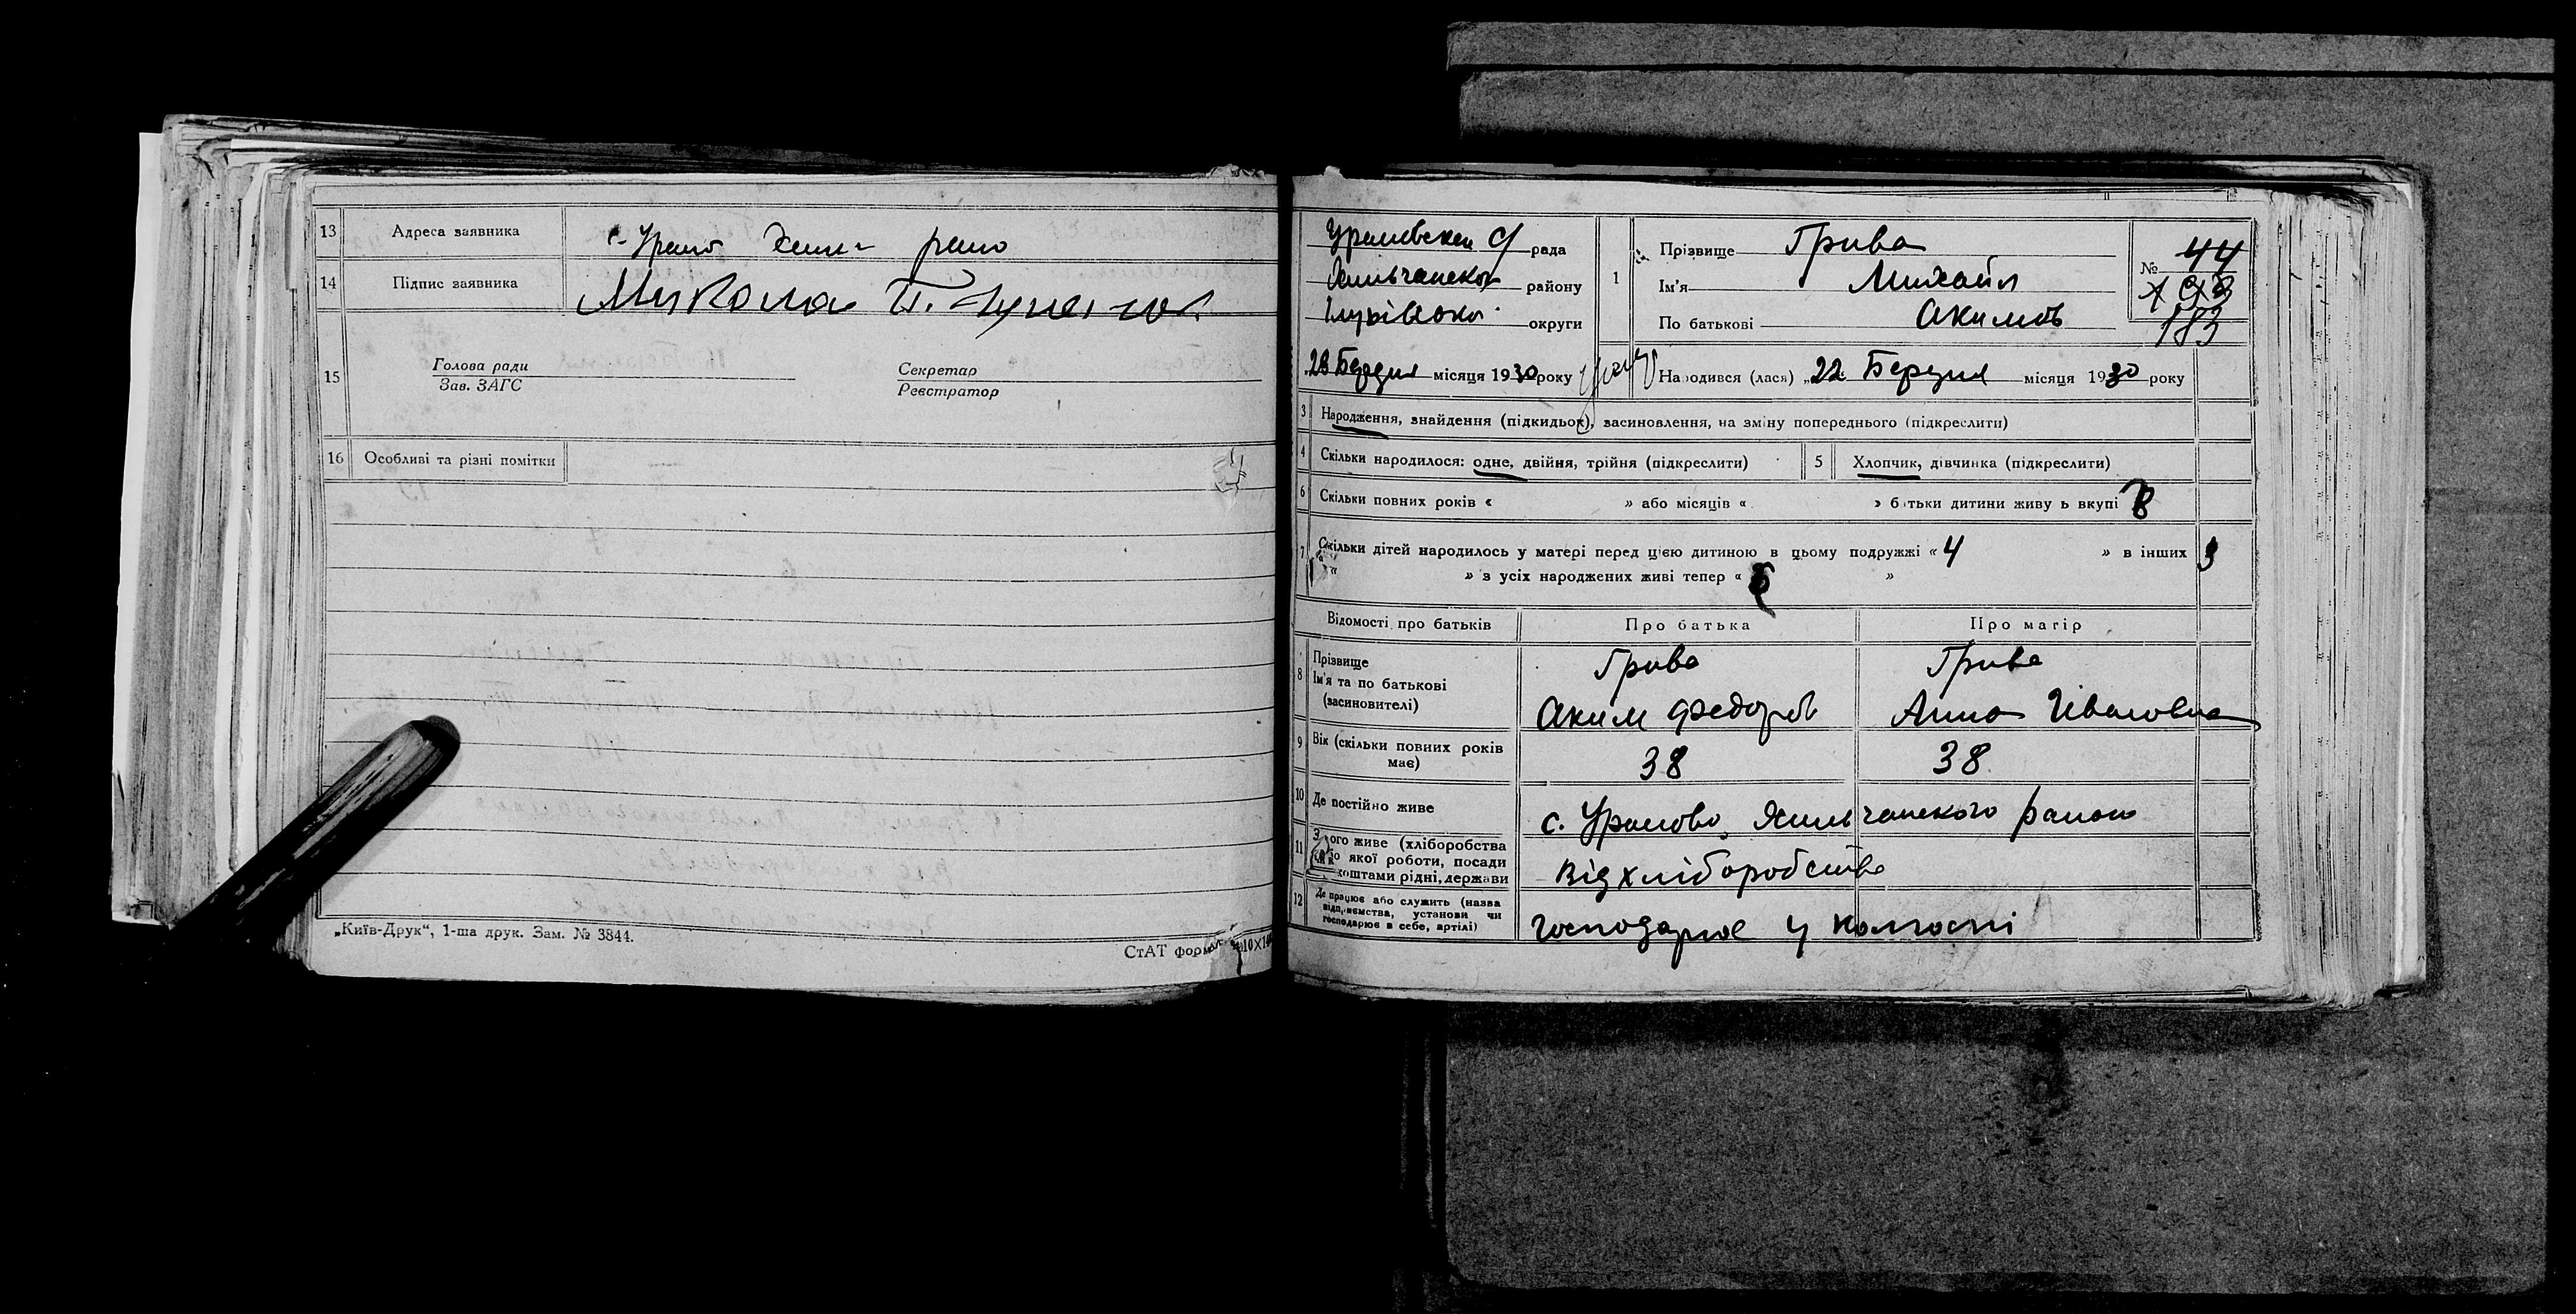 13 Адреса заявника
14 Підпис заявника Микола
15 Голова ради
Зав. ЗАГС
Секретар
Реєстратор
16 Особливі та різні помітки
„Київ-Друк“, 1-ша друк. Зам. № 3844.
СтАТ форма
рада
району
округи
28 Березня місяця 1930 року
1 Прізвище Грива
Ім'я Михайл
По батькові Акимов
№ 44
183
Народився (лася) „22 Березня місяця 1930 року
3 Народження, знайдення (підкидьок), засиновлення, на зміну попереднього (підкреслити)
4 Скільки народилося: одне, двійня, трійня (підкреслити) 5 Хлопчик, дівчинка (підкреслити)
6 Скільки повних років « » або місяців « » батьки дитини живуть вкупі
7 Скільки дітей народилось у матері перед цією дитиною в цьому подружжі « 4 » в інших
« » з усіх народжених живі тепер « »
Відомості про батьків Про батька Про матір
8 Прізвище Грива Грива
Ім'я та по батькові
(засиновителі) Аким Федоров Анна Івановна
9 Вік (скільки повних років має) 38 38
10 Де постійно живе с. Ураново Хильчанского району
11 З чого живе (хліборобства
або якої роботи, посади
коштами рідні, держави Від хліборобства
12 Де працює або служить (назва
підприємства, установи чи
господарює в себе, артілі) господарює у колгоспі